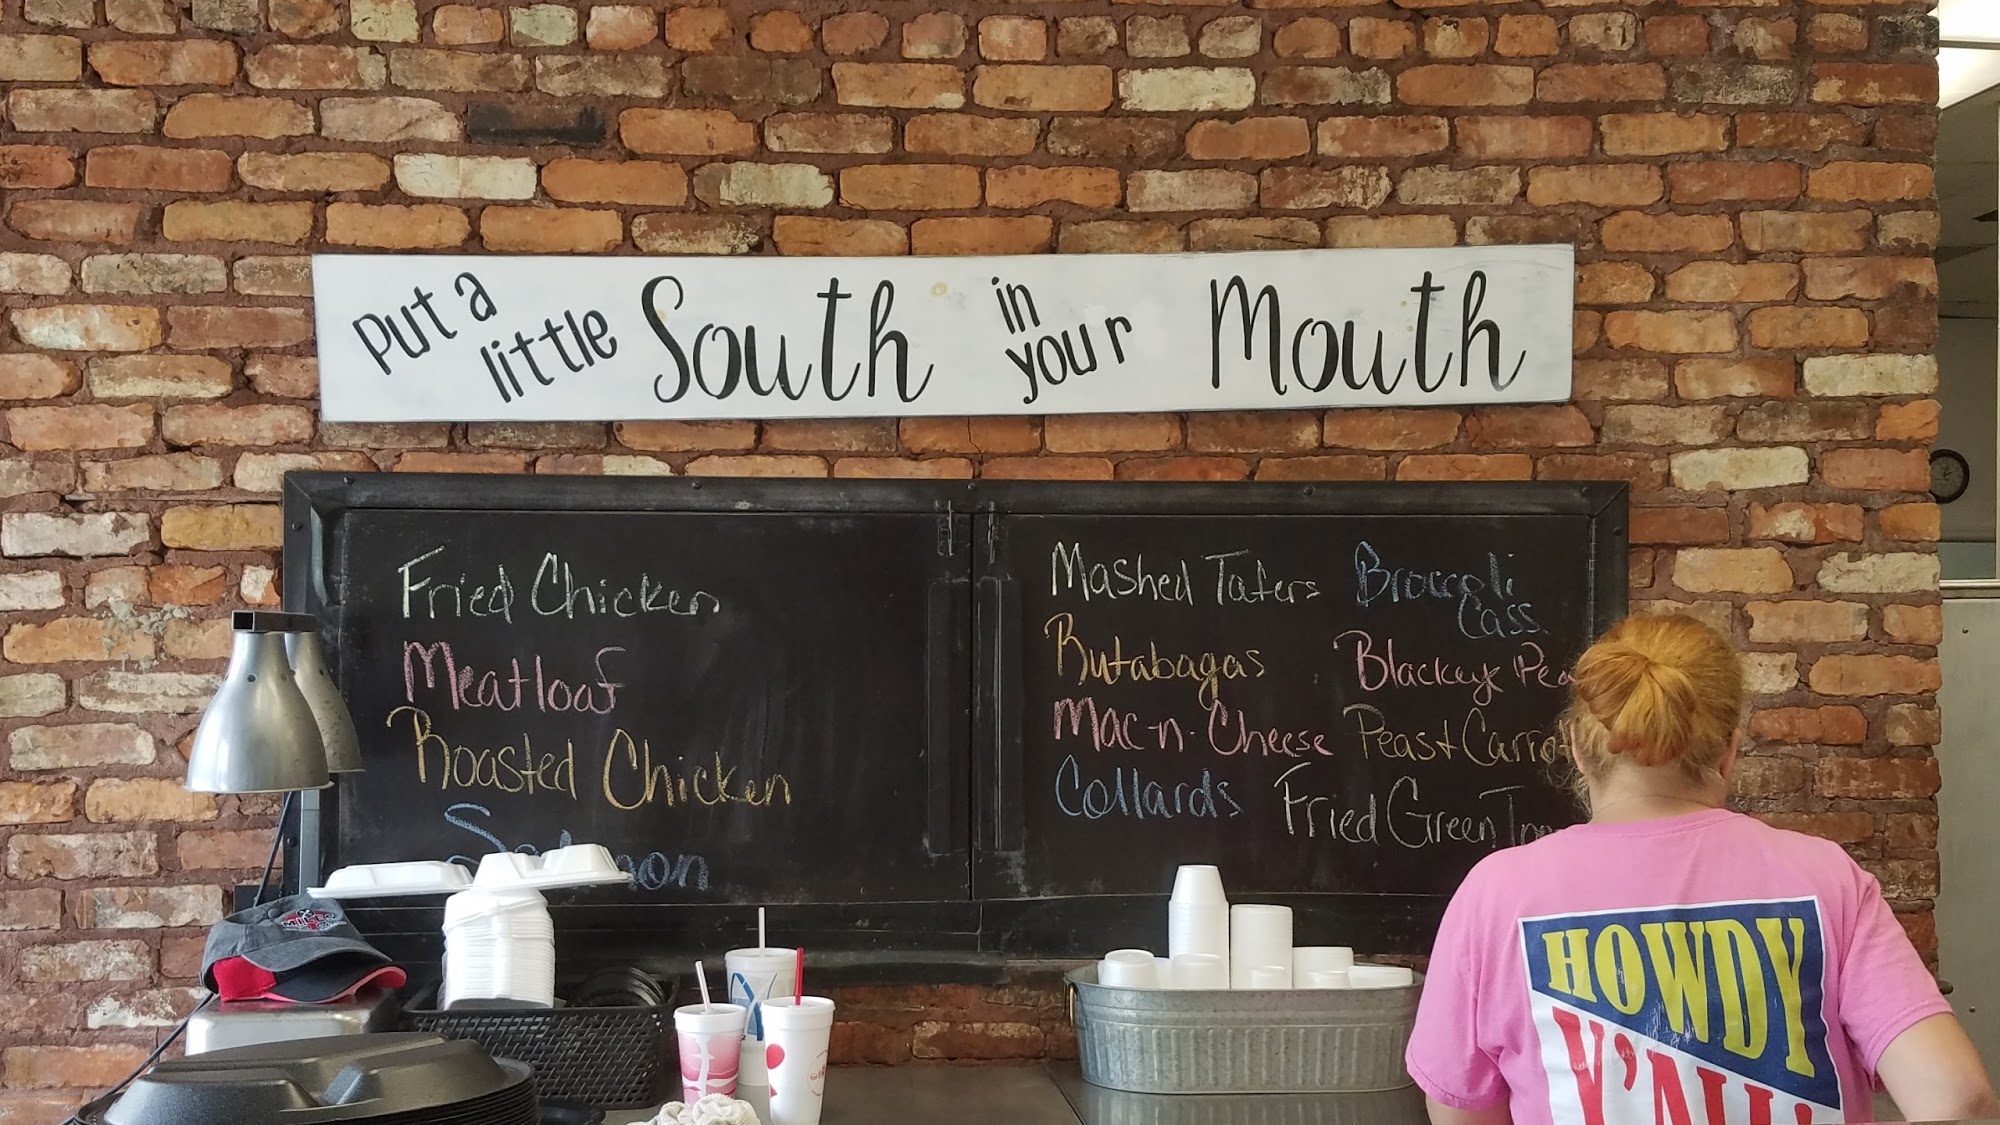 Put a
little South in
your Mouth
Fried Chicken
Meatloaf
Roasted Chicken
Salmon
Mashed Taters
Rutabagas
Mac-n-Cheese
Collards
Broccoli
Cass.
Blackeye Pea
Peas + Carrot
Fried Green
HOWDY
Y'ALL!